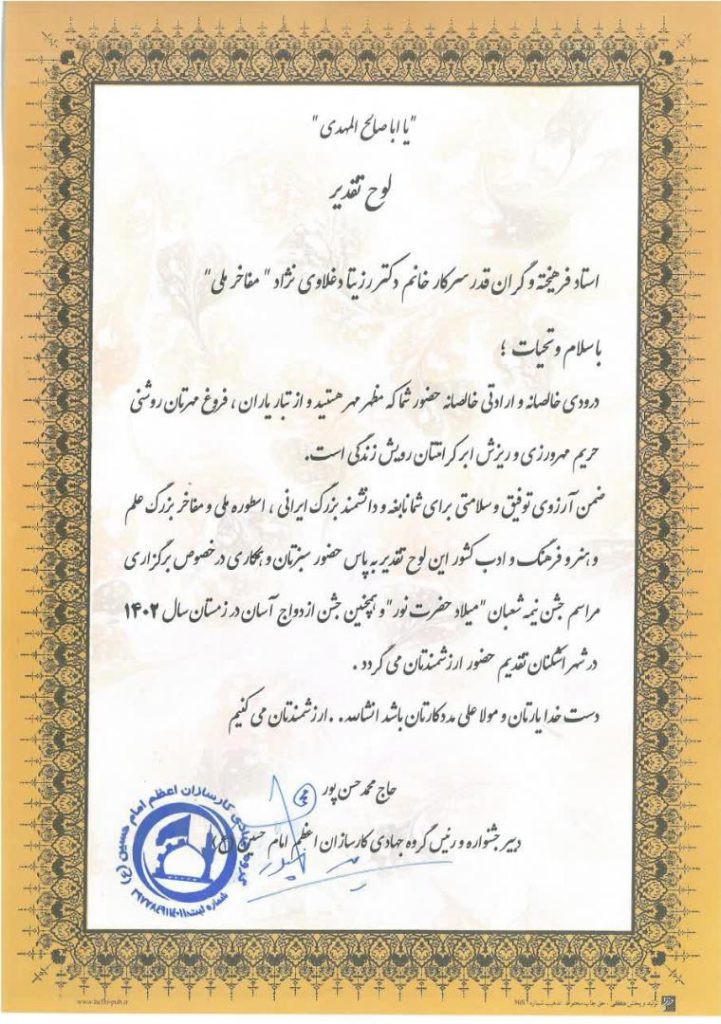 "یا ابا صالح المهدی"
لوح تقدیر
استاد فرهیخته و گران قدر سرکار خانم دکتر رزیتا دغلاوی نژاد "مفاخر ملی"
با سلام و تحیات ؛
درودی خالصانه و ارادتی خالصانه حضور شما که مظهر مهر هستید و از تبار یاران ، فروغ مهرتان روشنی
حریم مهرورزی و ریزش ابر کرامتتان رویش زندگی است.
ضمن آرزوی توفیق و سلامتی برای شما نابغه و دانشمند بزرگ ایرانی ، اسطوره ملی و مفاخر بزرگ علم
و هنر و فرهنگ و ادب کشور این لوح تقدیر به پاس حضور سبزتان و همکاری در خصوص برگزاری
مراسم جشن نیمه شعبان "میلاد حضرت نور" و همچنین جشن ازدواج آسان در زمستان سال ۱۴۰۲
در شهر اشکنان تقدیم حضور ارزشمندتان می گردد .
دست خدا یارتان و مولا علی مددکارتان باشد انشاءالله. . ارزشمندتان می کنیم
حاج محمد حسن پور
دبیر جشنواره و رئیس گروه جهادی کارسازان اعظم امام حسین (ع)
گروه جهادی کارسازان اعظم امام حسین (ع)
شماره ثبت:
www.naffis-pub.ir